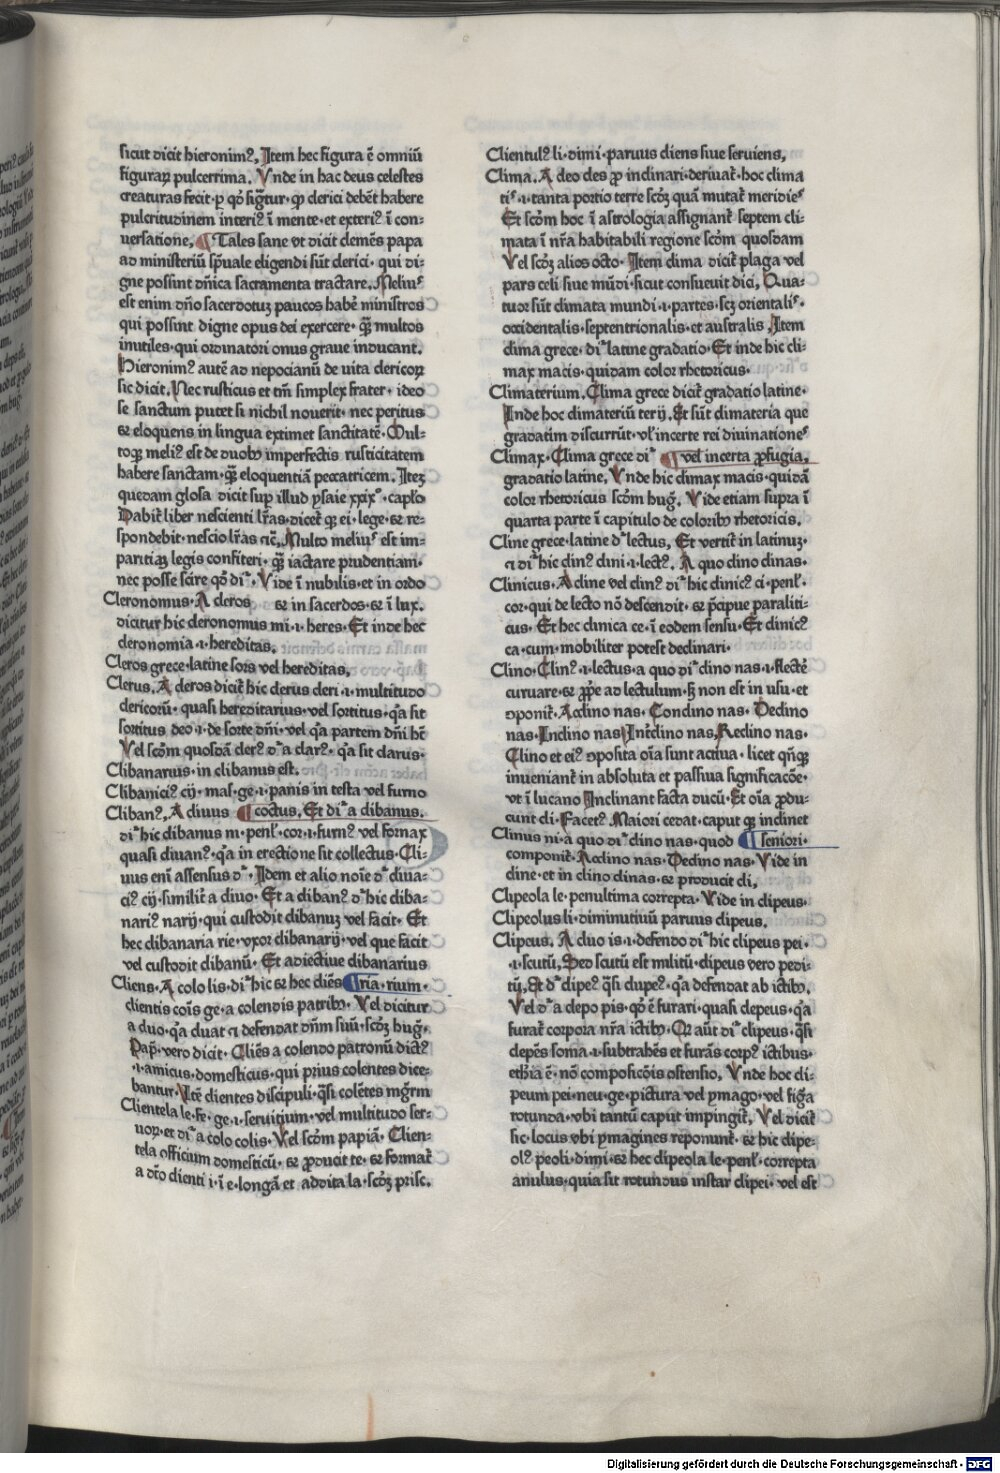 sicut dicit hieronimꝰ, Item hec figura ē omniū
figuraꝝ pulcerrima. Vnde in hac deus celestes
creaturas fecit · ꝑ qd̄ sigͬtur · ꝙ clerici debēt habere
pulcritudinem interiꝰ ī mente · et exteriꝰ ī con⸗
uersatione, ¶ Tales sane vt dicit clemēs papa
ad ministeriū sp̄uale eligendi sūt clerici · qui di⸗
gne possint dn̄ica sacramenta tractare, Meliuꝰ
est enim dn̄o sacerdotuꝫ paucos habē ministros
qui possint digne opus dei exercere · qꝫ multos
inutiles · qui ordinatori onus graue inducant.
Hieronimꝰ autē ad nepocianū de vita clericoꝝ
sic dicit, Nec rusticus et tm̄ simplex frater · ideo
se sanctum putet si nichil nouerit · nec peritus
et eloquens in lingua extimet sanctitatē · Mul⸗
toqꝫ meliꝰ est de duobꝫ imperfectis rusticitatem
habere sanctam · qꝫ eloquentiā peccatricem. Iteꝫ
quedam glosa dicit suꝑ illud ysaie xxix° · capl̓o
Dabit̓ liber nescienti lr̄as · dicet̓ qꝫ ei · lege · et re⸗
spondebit · nescio lr̄as ⁊c̄, Multo meliuꝰ est im⸗
paritiaꝫ legis confiteri · qꝫ iactare prudentiam ·
nec posse scire qd̓ diͬ · Vide ī nubilis · et in ordo
Cleronomus · A cleros et in sacerdos · et ī lux.
dicitur hic cleronomus mi · ı · heres · Et inde hec
cleronomia · ı · hereditas,
Cleros grece · latine sors vel hereditas,
Clerus, A cleros dicit̓ hic clerus cleri · ı · multitudo
clericorū · quasi hereditarius · vel sortitus · qͣa sit
sortitus deo · ı · de sorte dn̄i · vel qͣa partem dn̄i hꝫ
Vel scd̓m quosdā clerꝰ dͬ a clarꝰ · qͣa sit clarus ·
Clibanarius · in clibanus est ·
Clibaniciꝰ cij · mas · ge · ı · panis in testa vel furno
Clibanꝰ, A cliuus ¶ coctus, Et diͬ a clibanus.
diͬ hic clibanus ni · penl̓ · cor · ı · furnꝰ vel fornax
quasi cliuanꝰ · qͣa in erectione sit collectus · Cli⸗
uus enī assensus dͬ · Idem et alio noīe dͬ cliua⸗
ciꝰ cij · similit̓ a cliuo · Et a clibanꝰ dͬ hic cliba⸗
nariꝰ narij · qui custodit clibanuꝫ vel facit · Et
hec clibanaria rie · vxor clibanarij · vel que facit
vel custodit clibanū · Et adiectiue clibanarius
Cliens · A colo lis · diͬ hic et hec cliēs ¶ ria · rium ·
clientis cōis ge · a colendis patribꝫ · Vel dicitur
a cluo · qͣa cluat ı defendat dn̄m suū · scd̓ꝫ hug̓ ·
Pap̓ · vero dicit · Cliēs a colendo patronū dictꝰ
· ı · amicus · domesticus · qui prius colentes dice⸗
bantur · Itē clientes discipuli · qͣsi colētes mgr̄m
Clientela le · fe · ge · ı · seruitium · vel multitudo ser⸗
uoꝝ · et diͬ a colo colis · Vel scd̓m papiā · Clien⸗
tela officium domesticū · et producit te · et format̓
a dt̓o clienti · ı · ī e · longā et addita la · scd̓ꝫ prisc.
Clientulꝰ li · dimi · paruus cliens siue seruiens,
Clima. A cleo cles ꝓ inclinari · deriuat̓ · hoc clima
tiˢ · ı · tanta portio terre scd̓ꝫ quā mutat̓ meridieˢ
Et scd̓m hoc ī astrologia assignant̓ septem cli⸗
mata ī nr̄a habitabili regione scd̓m quosdam
Vel scd̓ꝫ alios octo · Item clima dicit̓ plaga vel
pars celi siue mūdi · sicut consueuit dici, Qua⸗
tuor sūt climata mundi · ı · partes · scꝫ orientaliˢ ·
occidentalis · septentrionalis · et australis, Item
clima grece · diͬ latine gradatio · Et inde hic cli⸗
max macis · quidam color rhetoricus ·
Climaterium. Clima grece dicit̓ gradatio latine ·
Inde hoc climateriū terij. Et sūt climateria que
gradatim discurrūt · vl̓ incerte rei diuinationeˢ
Climax · Clima grece diͬ ¶ vel incerta ꝓfugia.
gradatio latine, Vnde hic climax macis · quidā
color rhetoricus scd̓m hug̓. Vide etiam supra ī
quarta parte ī capitulo de coloribꝫ rhetoricis.
Cline grece · latine dͬ lectus, Et vertit̓ in latinuꝫ ·
⁊ diͬ hic clinꝰ clini · ı · lectꝰ. A quo clino clinas.
Clinicus · A cline vel clinꝰ diͬ hic clinicꝰ ci · penl̓ ·
cor · qui de lecto nō descendit · et p̄cipue paraliti⸗
cus · Et hec clinica ce · ī eodem sensu · Et clinicꝰ
ca · cum · mobiliter potest declinari ·
Clino · Clinꝰ · ı · lectus · a quo diͬ clino nas · ı · flectē
curuare · et ꝓp̄e ad lectulum · sꝫ non est in usu · et
ↄponit̓ · Acclino nas · Conclino nas · Declino
nas · Inclino nas Int̓clino nas, Reclino nas ·
Clino et eiꝰ ↄposita oīa sunt actiua · licet qn̄qꝫ
inueniant̓ in absoluta et passiua significacōe ·
vt ī lucano Inclinant facta ducū · Et oīa ꝓdu⸗
cunt cli · Facetꝰ Maiori cedat · caput qꝫ inclinet
Clinus ni · a quo diͬ clino nas · quod ¶ seniori ·
componit̓ · Acclino nas · Declino nas · Vide in
cline · et in clino clinas · et producit cli,
Clipeola le · penultima correpta · Vide in clipeus ·
Clipeolus li · diminutiuū paruus clipeus.
Clipeus. A cluo is · ı · defendo diͬ hic clipeus pei ·
· ı · scutū, Sed scutū est militū · clipeus vero pedi⸗
tū, Et dͬ clipeꝰ qͣsi clupeꝰ · qͣa defendat ab ictibꝫ.
Vel dͬ a clepo pis · qd̓ ē furari · quasi clepeus · qͣa
furat̓ corpora nr̄a ictibꝫ · Qꝛ aūt diͬ clipeus · qͣsi
clepēs soma · ı · subtrahēs et furās corpꝰ ictibus ·
ethīa ē · nō compositōis ostensio, Vnde hoc cli⸗
peum pei · neu · ge · pictura vel ymago · vel figͣa
rotunda · vbi tantū caput impingit̓, Vel dicit̓
sic · locus vbi ymagines reponunt̓ · et hic clipe⸗
olꝰ peoli · dimi · et hec clipeola le · penl̓ · correpta
anulus · quia sit rotundus instar clipei · vel est
Digitalisierung gefördert durch die Deutsche Forschungsgemeinschaft - DFG